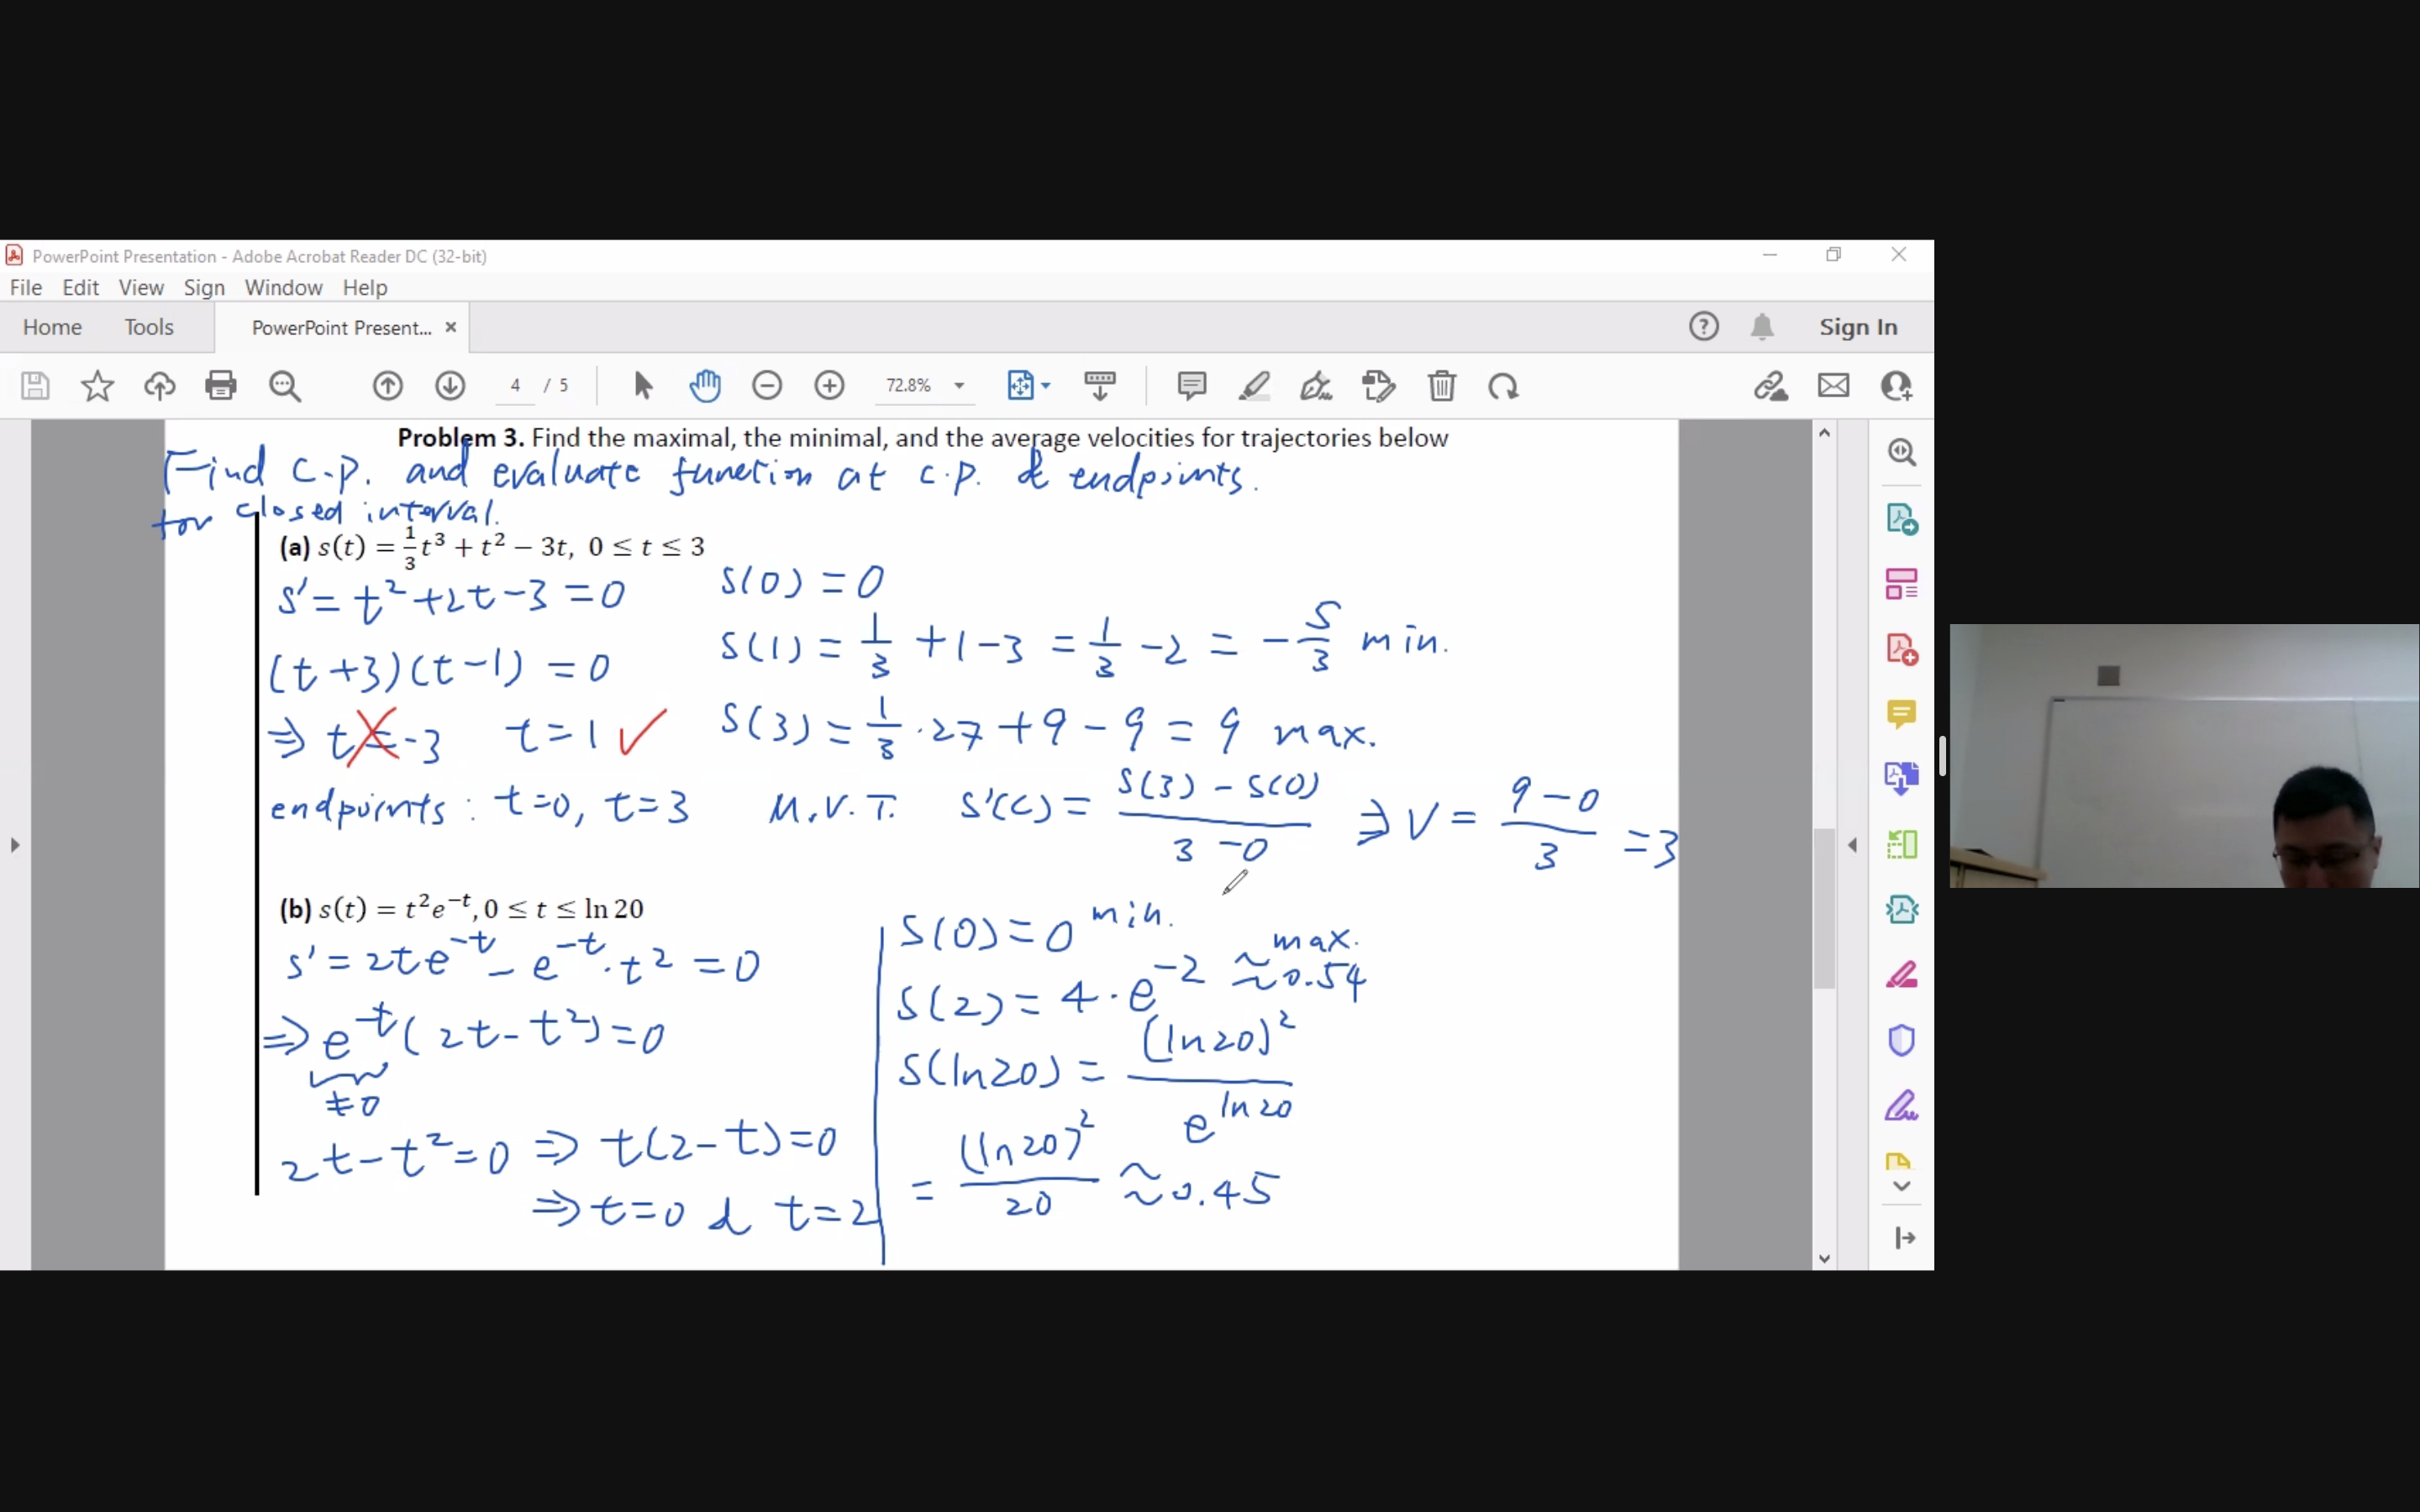 PowerPoint Presentation - Adobe Acrobat Reader DC (32-bit)
File Edit View Sign Window Help
Home Tools PowerPoint Present... × Sign In
4 / 5 72.8%
Problem 3. Find the maximal, the minimal, and the average velocities for trajectories below
Find c.p. and evaluate function at c.p. & endpoints.
for closed interval.
(a) s(t) = 1/3 t³ + t² − 3t, 0 ≤ t ≤ 3
s' = t² + 2t − 3 = 0
(t + 3)(t − 1) = 0
⇒ t = −3 t = 1 ✓
endpoints : t = 0, t = 3
s(0) = 0
s(1) = 1/3 + 1 − 3 = 1/3 − 2 = − 5/3 min.
s(3) = 1/3 · 27 + 9 − 9 = 9 max.
M.V.T. s'(c) = (s(3) − s(0))/(3 − 0) ⇒ V = (9 − 0)/3 = 3
(b) s(t) = t²e⁻ᵗ, 0 ≤ t ≤ ln 20
s' = 2te⁻ᵗ − e⁻ᵗ · t² = 0
⇒ e⁻ᵗ(2t − t²) = 0
≠ 0
2t − t² = 0 ⇒ t(2 − t) = 0
⇒ t = 0 & t = 2
s(0) = 0 min.
s(2) = 4 · e⁻² ≈ 0.54 max.
s(ln20) = (ln20)²/e^ln20
= (ln20)²/20 ≈ 0.45